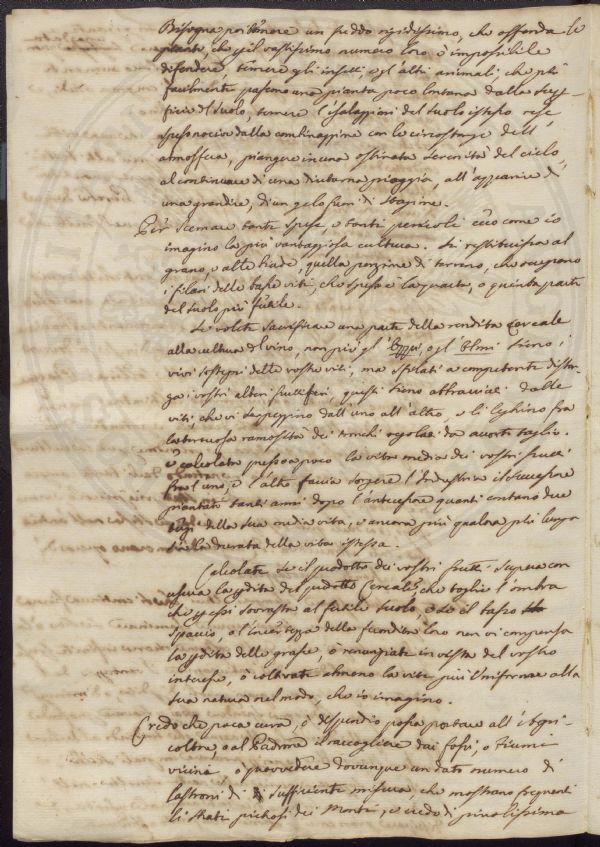 Bisogna poi temere un freddo rigidissimo, che offenda le
piante, che pel vastissimo numero loro è impossibile
difendere, temere gli insetti, e gl'altri animali, che più
facilmente passano una pianta poco lontana dalla super-
ficie del suolo, temere l'esalazioni del suolo istesso rese
spesso nocive dalla combinazione con le circostanze dell'
atmosfera, piangere in una ostinata serenità del cielo,
al continuare di una diuturna pioggia, all'apparire di
una grandine, di un gelo fuori di stagione.
Per scemare tante spese, e tanti pericoli ecco come io
imagino la più vantaggiosa cultura. Si restituisca al
grano, e alle biade, quella porzione di terreno, che occupano
i filari delle basse viti, che spesso è la quarta, o quinta parte
del suolo più fertile.
Se volete sacrificare una parte della rendita cereale
alla cultura del vino, non più gl'Oppi, o gl'Olmi sieno i
vivi sostegni delle vostre viti, ma sfilati a competente distan-
za i vostri alberi fruttiferi, questi sieno abbracciati dalle
viti, che vi si appoggino dall'uno all'altro, e li leghino fra
la tortuosa ramosità dei tronchi regolati da accorto taglio.
e calcolata presso a poco la vita media dei vostri frutti
fra l'uno, e l'altro faccia sorgere l'industria il successore
piantato tanti anni dopo l'antecessore quanti contano due
terzi della sua media vita, e ancora più qualora più lunga
sia la durata della vita istessa.
Calcolate se il prodotto dei vostri frutti supera con
usura la perdita del prodotto cereale, che toglie l'ombra
che essi sovrasta al fertile suolo, e se il basso
spaccio, o l'incertezza della fecondità loro non vi compensa
la perdita delle grasce, o renunziate in vista del vostro
interesse, o coltivate almeno la vite più uniforme alla
sua natura nel modo, che io imagino.
Credo che poca cura, e dispendio possa portare all'Agri-
coltore, o al Padrone il raccogliere dai fossi, o fiumi
vicini, o provvedere dovunque un dato numero di
lastroni di sufficiente misura, che mostrano frequenti
li strati pietrosi dei Monti, e credo di piccolissima